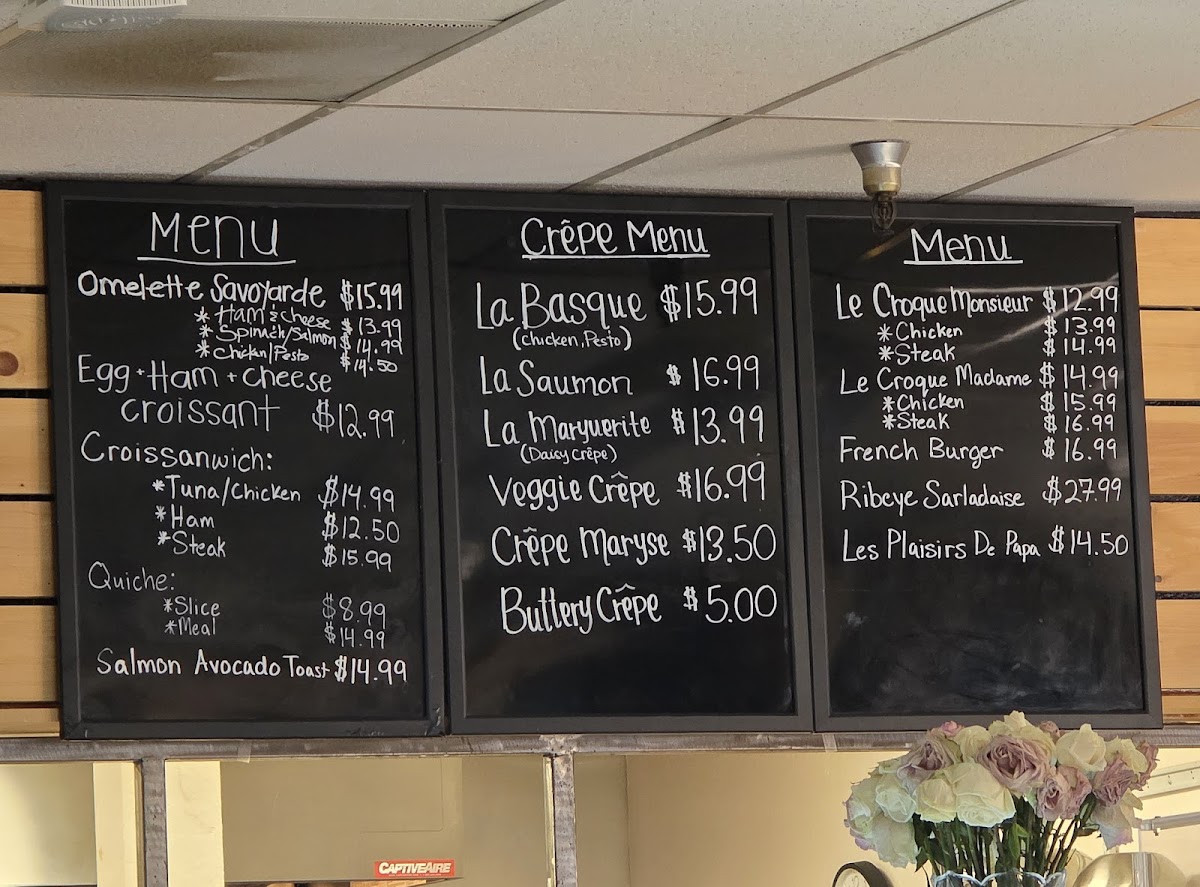 Menu
Omelette Savoyarde $15.99
* Ham & cheese $13.99
* Spinach/Salmon $14.99
* Chicken/Pesto $14.50
Egg + Ham + cheese
croissant $12.99
Croissanwich:
*Tuna/Chicken $14.99
*Ham $12.50
*Steak $15.99
Quiche:
*Slice $8.99
*Meal $14.99
Salmon Avocado Toast $14.99
Crêpe Menu
La Basque $15.99
(chicken, Pesto)
La Saumon $16.99
La Maryuerite $13.99
(Daisy crêpe)
Veggie Crêpe $16.99
Crêpe Maryse $13.50
Buttery Crêpe $5.00
Menu
Le Croque Monsieur $12.99
*Chicken $13.99
*Steak $14.99
Le Croque Madame $14.99
*Chicken $15.99
*Steak $16.99
French Burger $16.99
Ribeye Sarladaise $27.99
Les Plaisirs De Papa $14.50
CAPTIVEAIRE